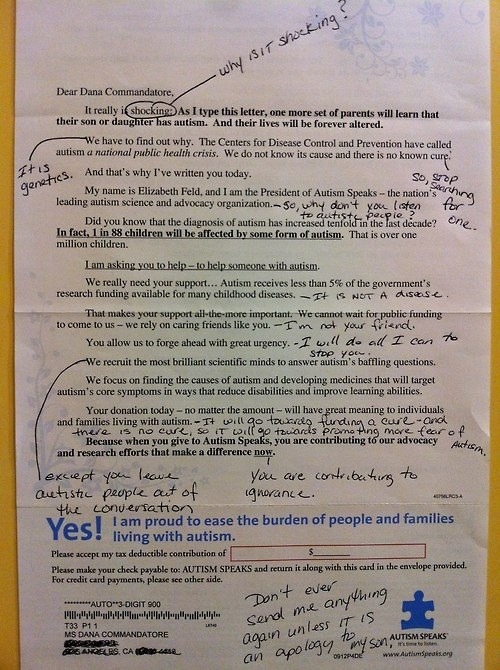 why is it shocking?
Dear Dana Commandatore,
It really is shocking: As I type this letter, one more set of parents will learn that
their son or daughter has autism. And their lives will be forever altered.
We have to find out why. The Centers for Disease Control and Prevention have called
autism a national public health crisis. We do not know its cause and there is no known cure.
It is
genetics.
So, stop
searching
for
one.
And that's why I've written you today.
My name is Elizabeth Feld, and I am the President of Autism Speaks – the nation's
leading autism science and advocacy organization. – So, why don't you listen
to autistic people?
Did you know that the diagnosis of autism has increased tenfold in the last decade?
In fact, 1 in 88 children will be affected by some form of autism. That is over one
million children.
I am asking you to help – to help someone with autism.
We really need your support... Autism receives less than 5% of the government's
research funding available for many childhood diseases. – It is NOT A disease.
That makes your support all-the-more important. We cannot wait for public funding
to come to us – we rely on caring friends like you. – I'm not your friend.
You allow us to forge ahead with great urgency. – I will do all I can to
stop you.
We recruit the most brilliant scientific minds to answer autism's baffling questions.
We focus on finding the causes of autism and developing medicines that will target
autism's core symptoms in ways that reduce disabilities and improve learning abilities.
Your donation today – no matter the amount – will have great meaning to individuals
and families living with autism. – It will go towards funding a cure – and
there is no cure, so it will go towards promoting more fear of
Autism.
Because when you give to Autism Speaks, you are contributing to our advocacy
and research efforts that make a difference now.
except you leave
autistic people out of
the conversation
You are contributing to
ignorance.
40756LRC3-A
Yes! I am proud to ease the burden of people and families
living with autism.
Please accept my tax deductible contribution of $
Please make your check payable to: AUTISM SPEAKS and return it along with this card in the envelope provided.
For credit card payments, please see other side.
*********AUTO**3-DIGIT 900
T33 P1 1
MS DANA COMMANDATORE
LOS ANGELES, CA
Don't ever
send me anything
again unless it is
an apology to my son.
AUTISM SPEAKS
It's time to listen.
0912P4DE
www.AutismSpeaks.org